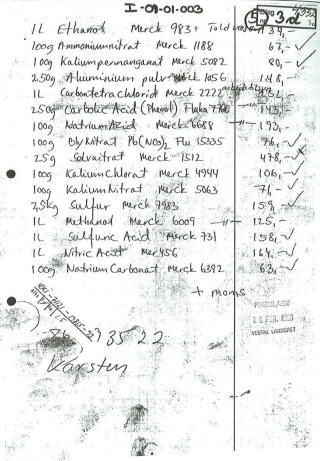 I-09-01-003
1L Ethanol Merck 983
134,-
100g Ammoniumnitrat Merck 1188 67,-
100g Kaliumpermanganat Merck 5082 80,-
250g Aluminium pulv Merck 1056 148,-
1L Carbontetrachlorid Merck 2222
250g Carbolic Acid (Phenol) Fluka
100g Natrium Azid Merck 6688 -"- 193,-
100g Blynitrat Pb(NO3)2 Flu 15335 76,-
25g Sølvnitrat Merck 1512 478,-
100g Kaliumchlorat Merck 4944 106,-
100g Kalium Nitrat Merck 5063 71,-
2,5kg Sulfur Merck 7983 159,-
1L Methanol Merck 6009 -"- 125,-
1L Sulfuric Acid Merck 731 158,-
1L Nitric Acid Mer 456 164,-
100g Natrium Carbonat Merck 6392 63,-
+ moms
FREMLAGT
VESTRE LANDSRET
935 22
Karsten